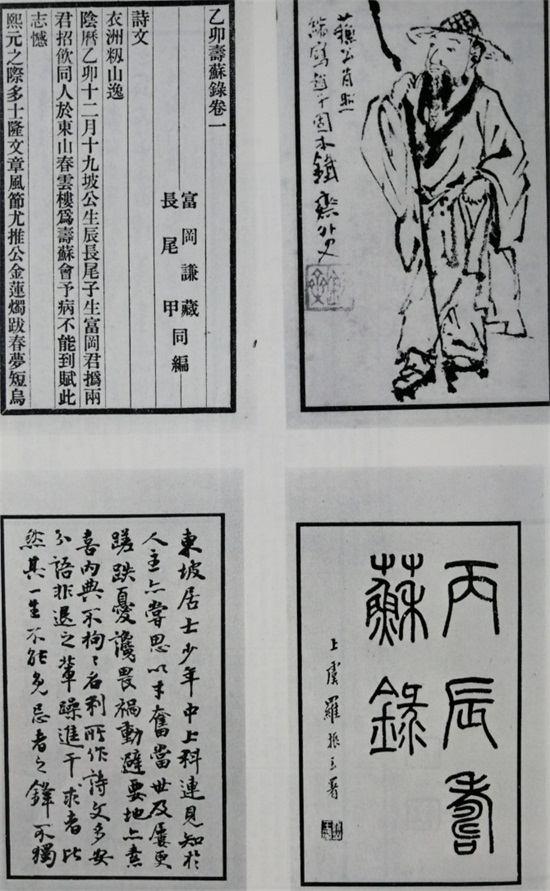 蘇公肖照
本鐵齋外史
乙卯壽蘇錄卷一
富岡謙藏
長尾甲
同編
詩文
衣洲籾山逸
陰曆乙卯十二月十九坡公生辰長尾子生富岡君撝兩
君招飲同人於東山春雲樓爲壽蘇會予病不能到賦此
志憾
熙元之際多士隆文章風節尤推公金蓮燭跋春夢短烏
丙辰壽
蘇錄
上虞羅振玉署
東坡居士少年中上科連見知於
人主亦嘗思以才奮當世及屢更
蹉跌憂讒畏禍動避要地亦素
喜内典不拘々名利所作詩文多安
分語非退之輩躁進干求者比
然其一生不能免忌者之鋒不獨